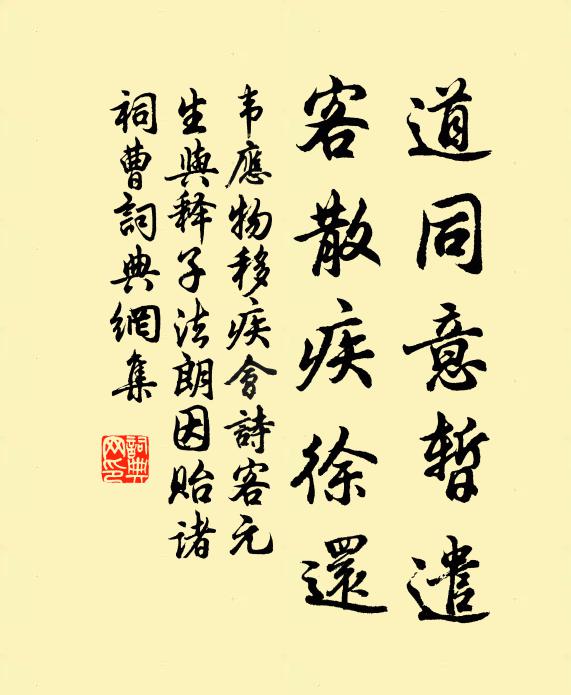 道同意暫遣
客散疾徐還
韦應物移疾會詩客元
生與释子法朗因贻诸
祠曹詞典網集
詞典网印